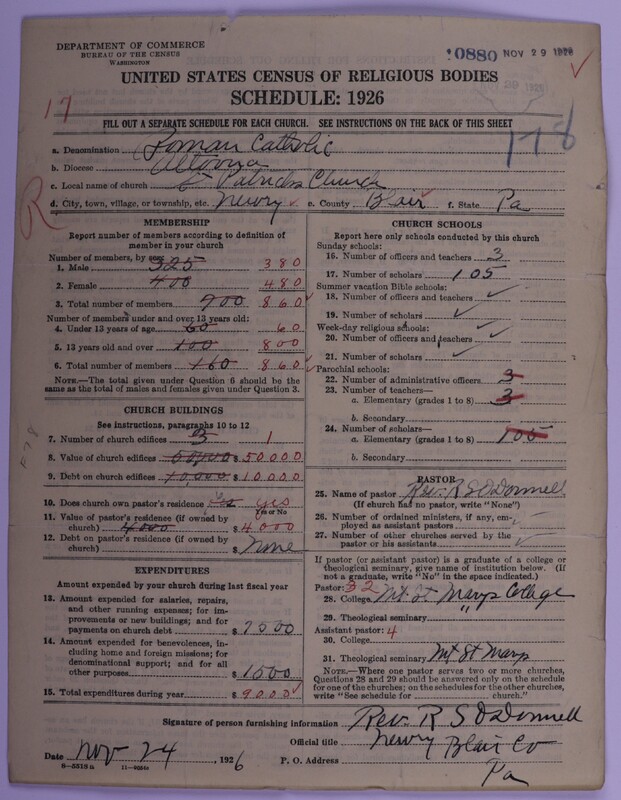 DEPARTMENT OF COMMERCE
BUREAU OF THE CENSUS
WASHINGTON
0880 NOV 29 1926
UNITED STATES CENSUS OF RELIGIOUS BODIES
SCHEDULE: 1926
17
178
FILL OUT A SEPARATE SCHEDULE FOR EACH CHURCH. SEE INSTRUCTIONS ON THE BACK OF THIS SHEET
a. Denomination Roman Catholic
b. Diocese Altoona
c. Local name of church St Patricks Church
d. City, town, village, or township, etc. Newry e. County Blair f. State Pa
R
MEMBERSHIP
Report number of members according to definition of member in your church
Number of members, by sex:
1. Male 325 380
2. Female 400 480
3. Total number of members 900 860
Number of members under and over 13 years old:
4. Under 13 years of age 60 60
5. 13 years old and over 100 800
6. Total number of members 160 860
NOTE.—The total given under Question 6 should be the same as the total of males and females given under Question 3.
CHURCH BUILDINGS
See instructions, paragraphs 10 to 12
7. Number of church edifices 3 1
8. Value of church edifices $ 50000
9. Debt on church edifices 10,000 $ 10000
10. Does church own pastor's residence Yes yes
Yes or No
11. Value of pastor's residence (if owned by church) 4000 $ 4000
12. Debt on pastor's residence (if owned by church) $ None
EXPENDITURES
Amount expended by your church during last fiscal year
13. Amount expended for salaries, repairs, and other running expenses; for improvements or new buildings; and for payments on church debt $ 7500
14. Amount expended for benevolences, including home and foreign missions; for denominational support; and for all other purposes $ 1500
15. Total expenditures during year $ 9000
CHURCH SCHOOLS
Report here only schools conducted by this church
Sunday schools:
16. Number of officers and teachers 3
17. Number of scholars 105
Summer vacation Bible schools:
18. Number of officers and teachers
19. Number of scholars
Week-day religious schools:
20. Number of officers and teachers
21. Number of scholars
Parochial schools:
22. Number of administrative officers 3
23. Number of teachers—
a. Elementary (grades 1 to 8) 3
b. Secondary
24. Number of scholars—
a. Elementary (grades 1 to 8) 105
b. Secondary
PASTOR
25. Name of pastor Rev. R S O'Donnell
(If church had no pastor, write "None")
26. Number of ordained ministers, if any, employed as assistant pastors
27. Number of other churches served by the pastor or his assistants
If pastor (or assistant pastor) is a graduate of a college or theological seminary, give name of institution below. (If not a graduate, write "No" in the space indicated.)
Pastor: 32
28. College Mt. St Marys College
29. Theological seminary "
Assistant pastor: 4
30. College
31. Theological seminary Mt St Marys
NOTE.—Where one pastor serves two or more churches, Questions 28 and 29 should be answered only on the schedule for one of the churches; on the schedules for the other churches, write "See schedule for church."
Signature of person furnishing information Rev. R S O'Donnell
Official title Newry Blair Co
Date Nov 24, 1926 P. O. Address Pa